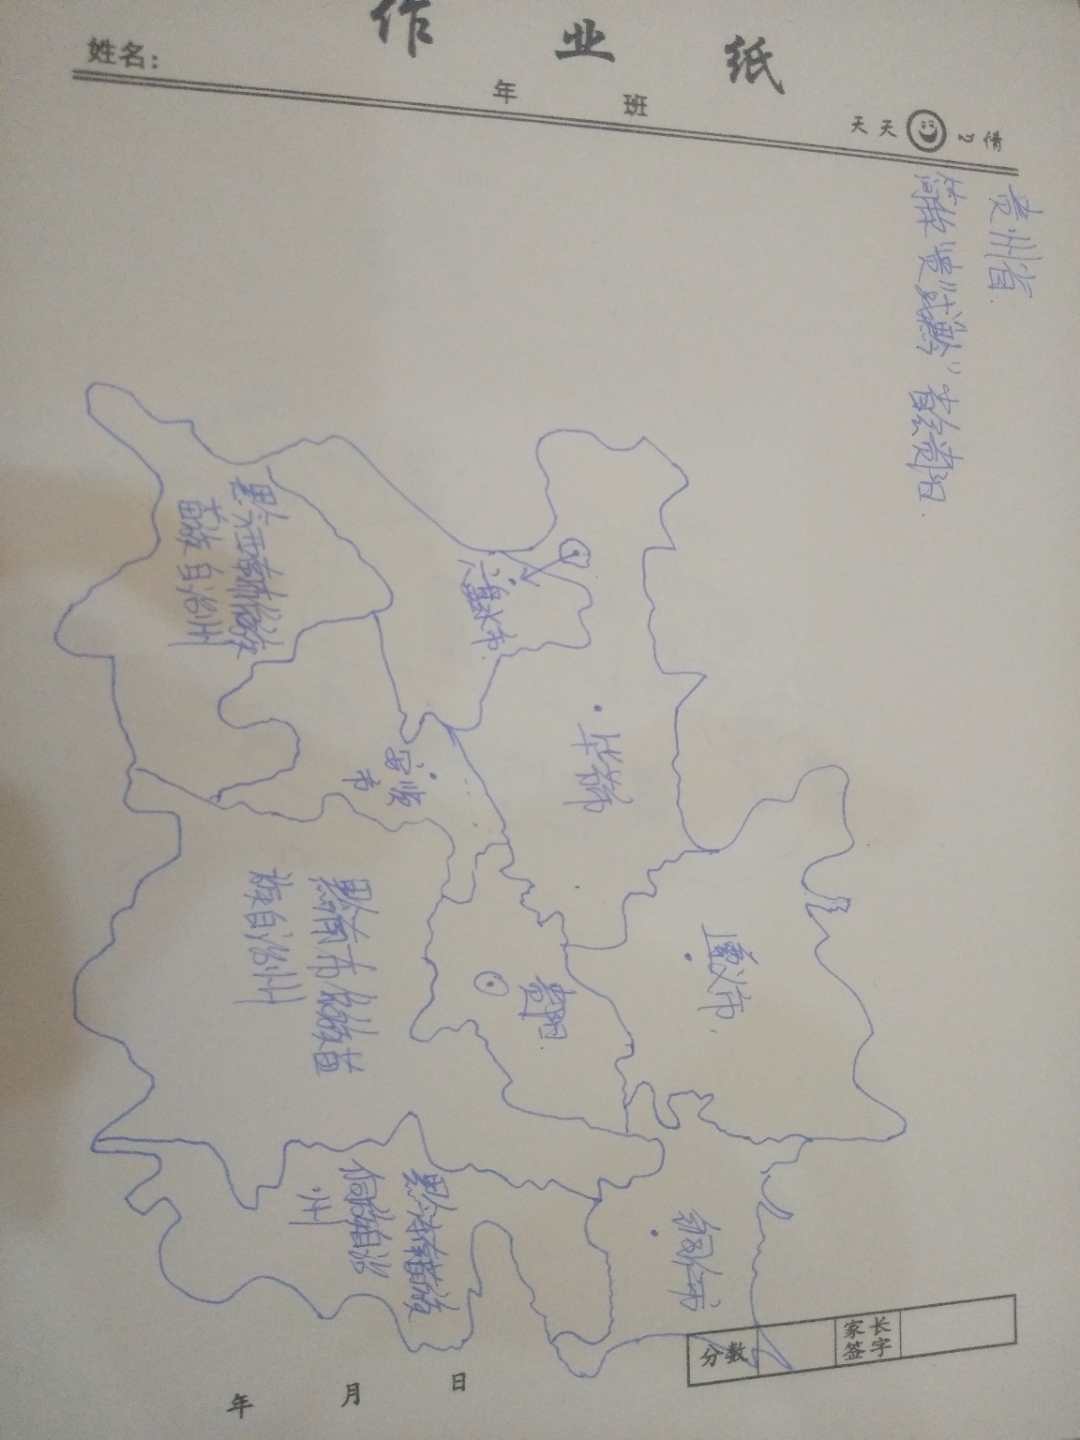 作业纸
姓名：
年 班
天天 心情
贵州省
简称"贵"或"黔" 省会贵阳
遵义市
铜仁市
毕节市
贵阳
六盘水市
安顺
市
黔东南苗族
侗族自治
州
黔南布依族苗
族自治州
黔西南布依族
苗族自治州
分数
家长
签字
年 月 日